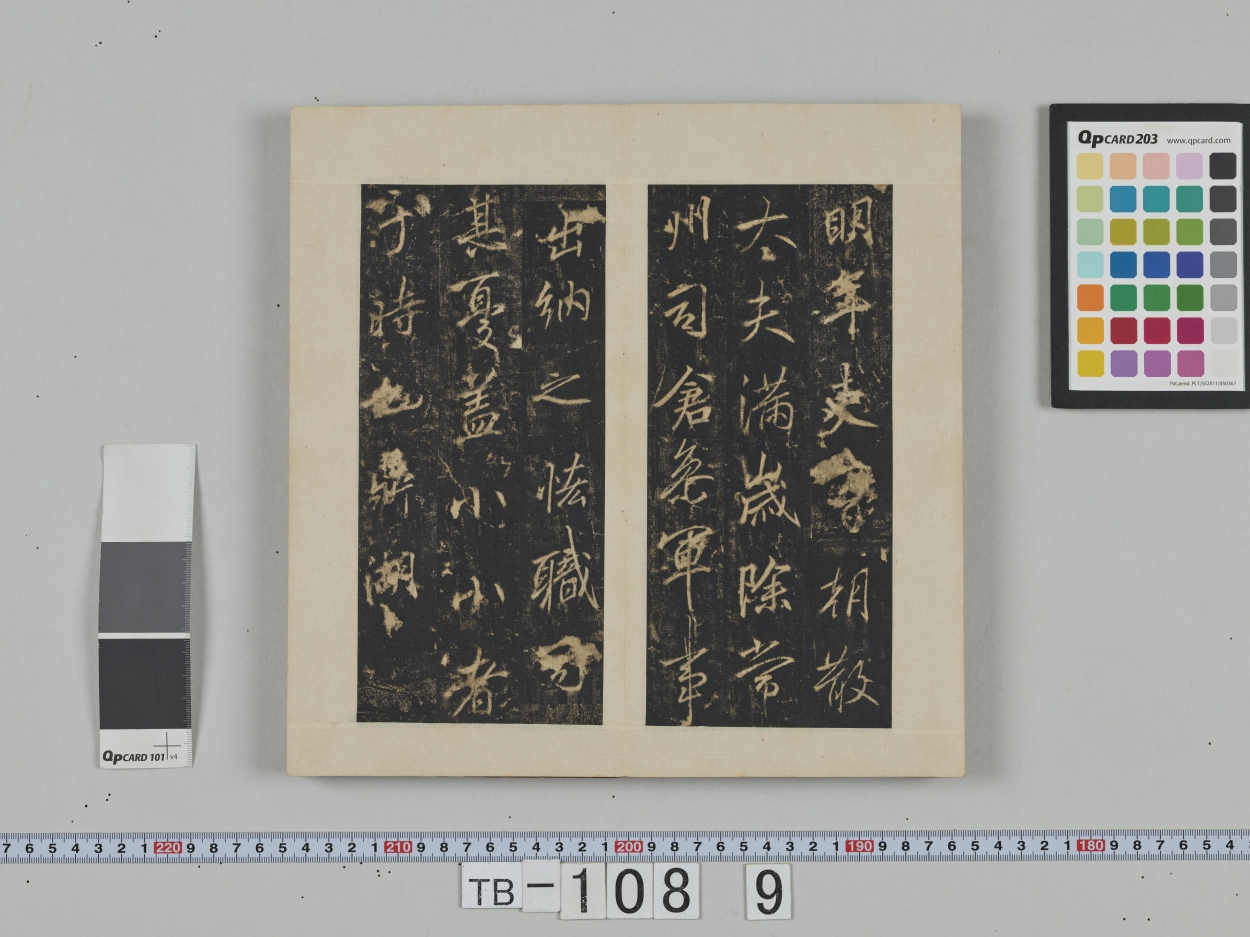 明年吏朝散
大夫滿歲除常
州司倉叅軍事
出納之恡職司
其憂盖小小者
于時也鼎湖
QpCARD 203 www.qpcard.com
Pat.pend. PCT/SE2011/050367
QpCARD 101 v4
7 6 5 4 3 2 1 220 9 8 7 6 5 4 3 2 1 210 9 8 7 6 5 4 3 2 1 200 9 8 7 6 5 4 3 2 1 190 9 8 7 6 5 4 3 2 1 180 9 8 7 6 5 4
TB-108 9